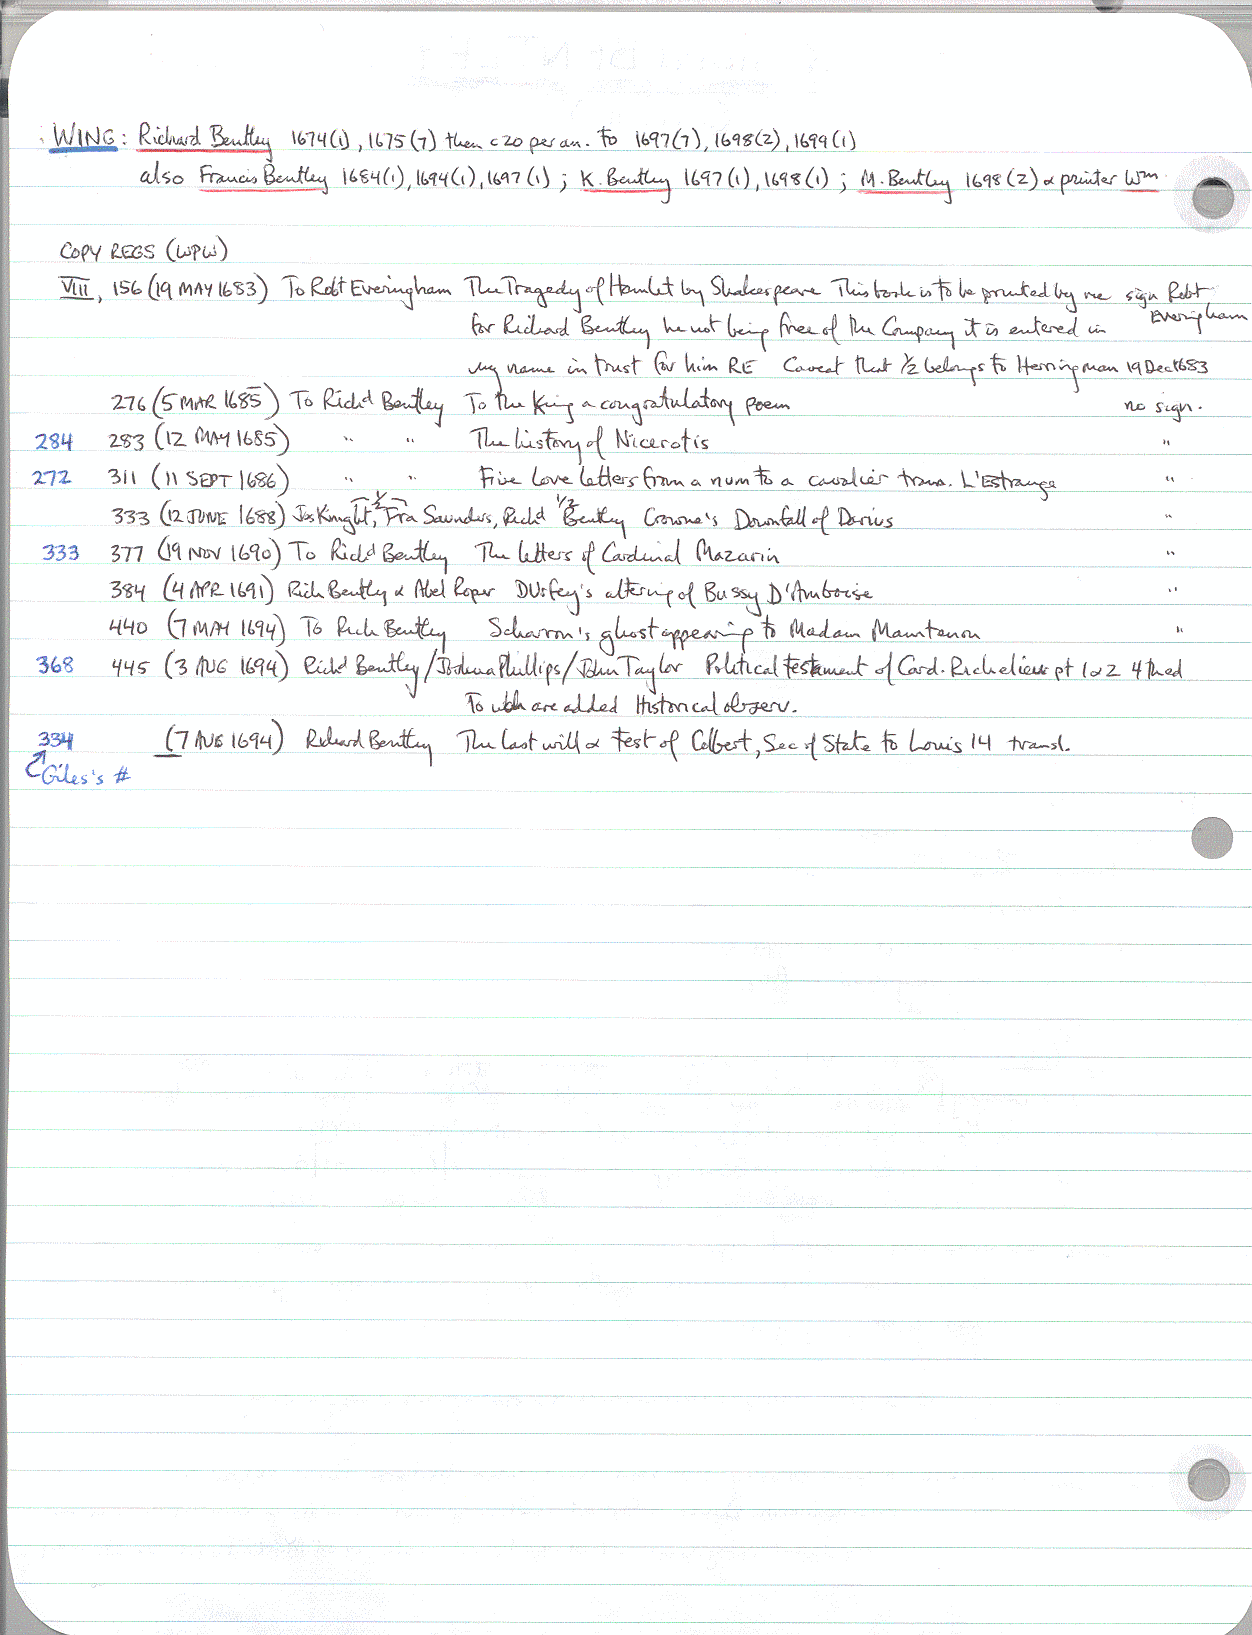 WING: Richard Bentley 1674(1), 1675(7) then c20 per an. to 1697(7), 1698(2), 1699(1)
also Francis Bentley 1684(1), 1694(1), 1697(1); K. Bentley 1697(1), 1698(1); M. Bentley 1698(2) & printer Wm
COPY REGS (WPW)
VIII, 156 (19 MAY 1683) To Robt Everingham The Tragedy of Hamlet by Shakespeare This book is to be printed by me sign Robt Everingham
for Richard Bentley he not being free of the Company it is entered in
my name in trust for him RE Caveat that 1/2 belongs to Herringman 19 Dec 1683
276 (5 MAR 1685) To Rich'd Bentley To the King a congratulatory poem no sign.
284 283 (12 MAY 1685) " " The history of Nicerotis "
272 311 (11 SEPT 1686) " " Five love letters from a nun to a cavalier trans. L'Estrange "
333 (12 JUNE 1688) Jos Knight, 1/2 Fra Saunders, Rich'd 1/2 Bentley Crowne's Downfall of Darius "
333 377 (19 NOV 1690) To Rich'd Bentley The letters of Cardinal Mazarin "
384 (4 APR 1691) Rich Bentley & Abel Roper DUrfey's altering of Bussy D'Amboise "
440 (7 MAY 1694) To Rich Bentley Scharron's ghost appearing to Madam Maintenon "
368 445 (3 AUG 1694) Rich'd Bentley/Joshua Phillips/John Taylor Political testament of Card. Richelieu pt 1 & 2 4th ed
To wch are added Historical observ.
334 (7 AUG 1694) Richard Bentley The last will & test of Colbert, Sec of State to Louis 14 transl.
Giles's #